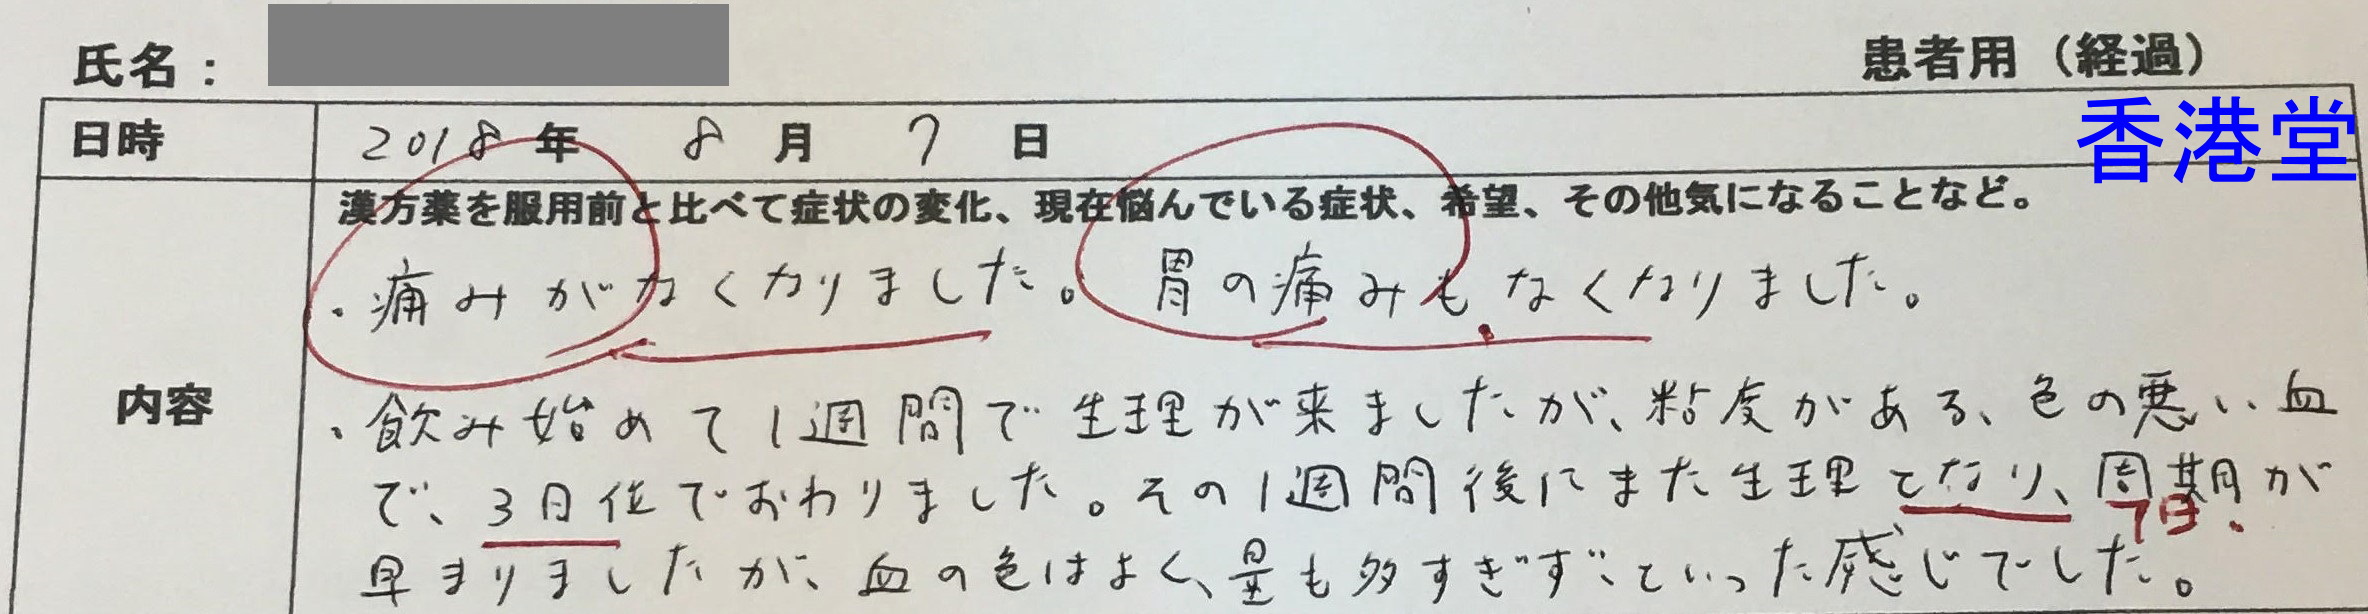 氏名：
患者用（経過）
香港堂
日時 2018年 8月 7日
漢方薬を服用前と比べて症状の変化、現在悩んでいる症状、希望、その他気になることなど。
内容
・痛みがなくなりました。胃の痛みもなくなりました。
・飲み始めて1週間で生理が来ましたが、粘度がある、色の悪い血
で、3日位でおわりました。その1週間後にまた生理となり、周期が
7日.
早まりましたが、血の色はよく、量も多すぎず、といった感じでした。